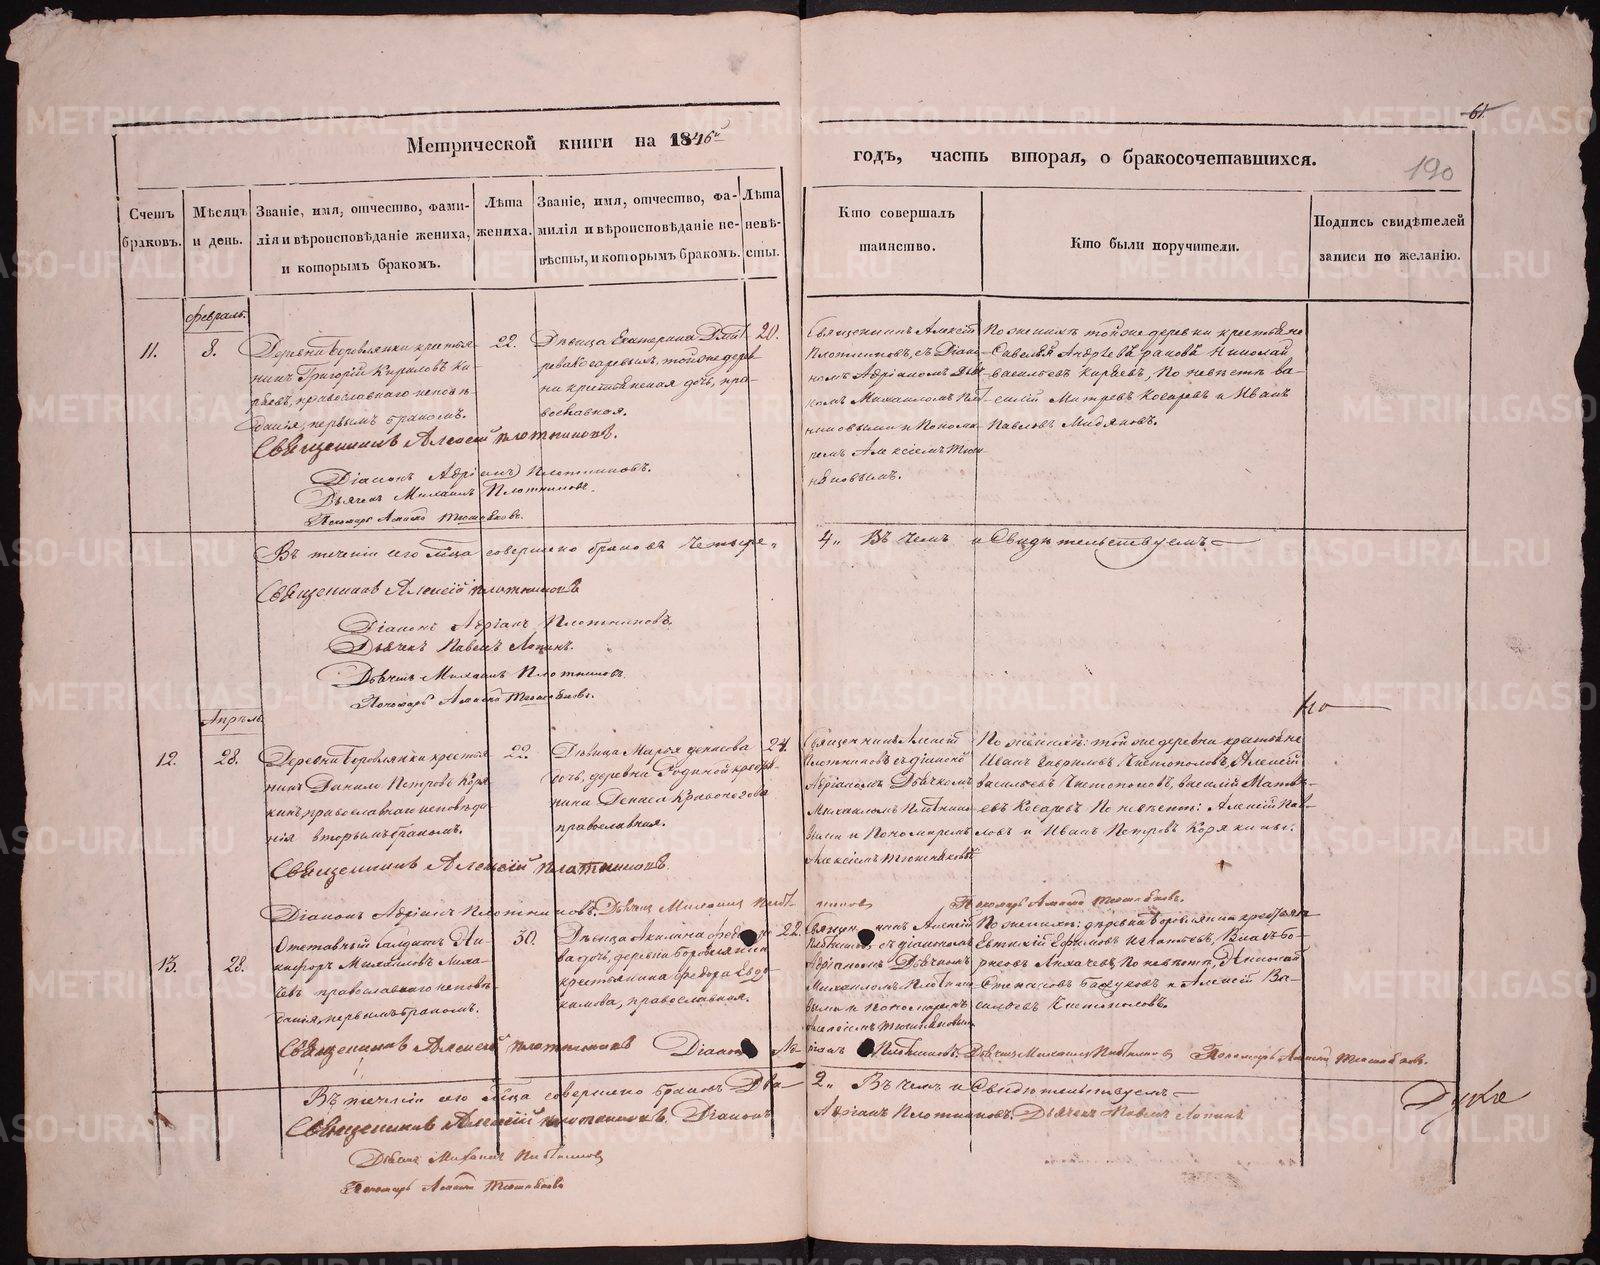 61.
190
Метрической книги на 1846й
годъ, часть вторая, о бракосочетавшихся.
Счетъ браковъ.
Мѣсяцъ и день.
Званіе, имя, отчество, фами-
лія и вѣроисповѣданіе жениха,
и которымъ бракомъ.
Лѣта
жениха.
Званіе, имя, отчество, фа-
милія и вѣроисповѣданіе не-
вѣсты, и которымъ бракомъ.
Лѣта
невѣ-
сты.
Кто совершалъ
таинство.
Кто были поручители.
Подпись свидѣтелей
записи по желанію.
февраль.
11.
8.
Деревни Боровлянки крестья-
нинъ Григорій Кириловъ Ки-
ряевъ, православнаго исповѣ-
данія, первымъ бракомъ.
22.
Дѣвица Екатерина Дмит
рева Косаревыхъ, той же дерев
ни крестьянская дочь, пра-
вославная.
20.
Священникъ Алексій
Плотниковъ, съ Діако-
номъ Адріаномъ Дья-
комъ Михаиломъ Пло-
никовыми и Понома-
ремъ Алексіемъ Тюш
няковымъ.
По женихѣ той же деревни крестьяне
Савелій Андреевъ Николай
Васильевъ Киряевъ, по невѣстѣ Ва-
силій Митревъ Косаревъ и Иванъ
Павловъ
Священникъ Алексій Плотниковъ.
Діаконъ Адріанъ Плотниковъ.
Дьячекъ Михаилъ Плотниковъ.
Пономарь Алексій Тюшняковъ.
Въ теченіи сего м҃ца совершено браковъ четыре„
4„ Въ чемъ и Свидѣтельствуемъ
Священникъ Алексій Плотниковъ
Діаконъ Адріанъ Плотниковъ.
Дьячекъ Павелъ Лапинъ.
Дьячекъ Михаилъ Плотниковъ.
Пономарь Алексій Тюшняковъ.
но
Апрѣль
12.
28.
Деревни Боровлянки крестья
нинъ Данилъ Петровъ Коря
кинъ, православнаго исповѣда
нія вторымъ бракомъ.
22.
Дѣвица Марья Денисова
дочь, деревни Родиной крестья
нина Дениса Кривоногова
православная.
24.
Священникъ Алексій
Плотниковъ съ діакономъ
Адріаномъ Дьячкомъ
Михаиломъ Плотнико-
выми и Пономаремъ
Алексіемъ Тюшняковымъ
По женихѣ: той же деревни крестьяне
Иванъ Гавриловъ Чистополовъ, Алексій
Васильевъ Чистополовъ, Василій Матвѣ-
евъ Косаревъ По невѣстѣ: Алексій Пав-
ловъ и Иванъ Петровъ Корякины.
Священникъ Алексій Плотниковъ.
Діаконъ Адріанъ Плотниковъ. Дьячекъ Михаилъ Плот-
никовъ Пономарь Алексій Тюшняковъ.
13.
28.
Отставный Солдатъ Ни-
кифоръ Михайловъ Лиха-
чевъ православнаго исповѣ-
данія, первымъ бракомъ.
30.
Дѣвица Акилина Федоро
ва дочь, деревни Боровлянки
крестьянина Федора Евдо-
кимова, православная.
22.
Священникъ Алексій
Плотниковъ съ діакономъ
Адріаномъ Дьячкомъ
Михаиломъ Плотнико-
выми и Пономаремъ
Алексіемъ Тюшняковымъ
По женихѣ: деревни Боровлянки крестьяне
Евтихій Ефимовъ Игнатьевъ, Власъ Бо-
рисовъ Лихачевъ, По невѣстѣ, Николай
Степановъ и Алексій Ва-
сильевъ Чистополовъ.
Священникъ Алексій Плотниковъ Діаконъ Ад-
ріанъ Плотниковъ. Дьячекъ Михаилъ Плотниковъ Пономарь Алексій Тюшняковъ.
Въ теченіи сего м҃ца совершено браковъ Два
2„ Въ чемъ и Свидѣтельствуемъ
Священникъ Алексій Плотниковъ. Діаконъ
Адріанъ Плотниковъ. Дьячекъ Павелъ Лапинъ
Дьячекъ Михаилъ Плотниковъ
Пономарь Алексій Тюшняковъ
Дука